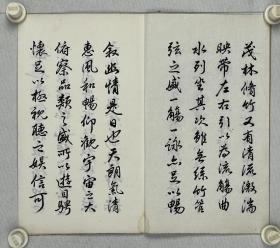 茂林脩竹又有清流激湍
映帶左右引以為流觴曲
水列坐其次雖無絲竹管
弦之盛一觴一詠亦足以暢
敘幽情是日也天朗氣清
惠風和暢仰觀宇宙之大
俯察品類之盛所以遊目騁
懷足以極視聽之娛信可